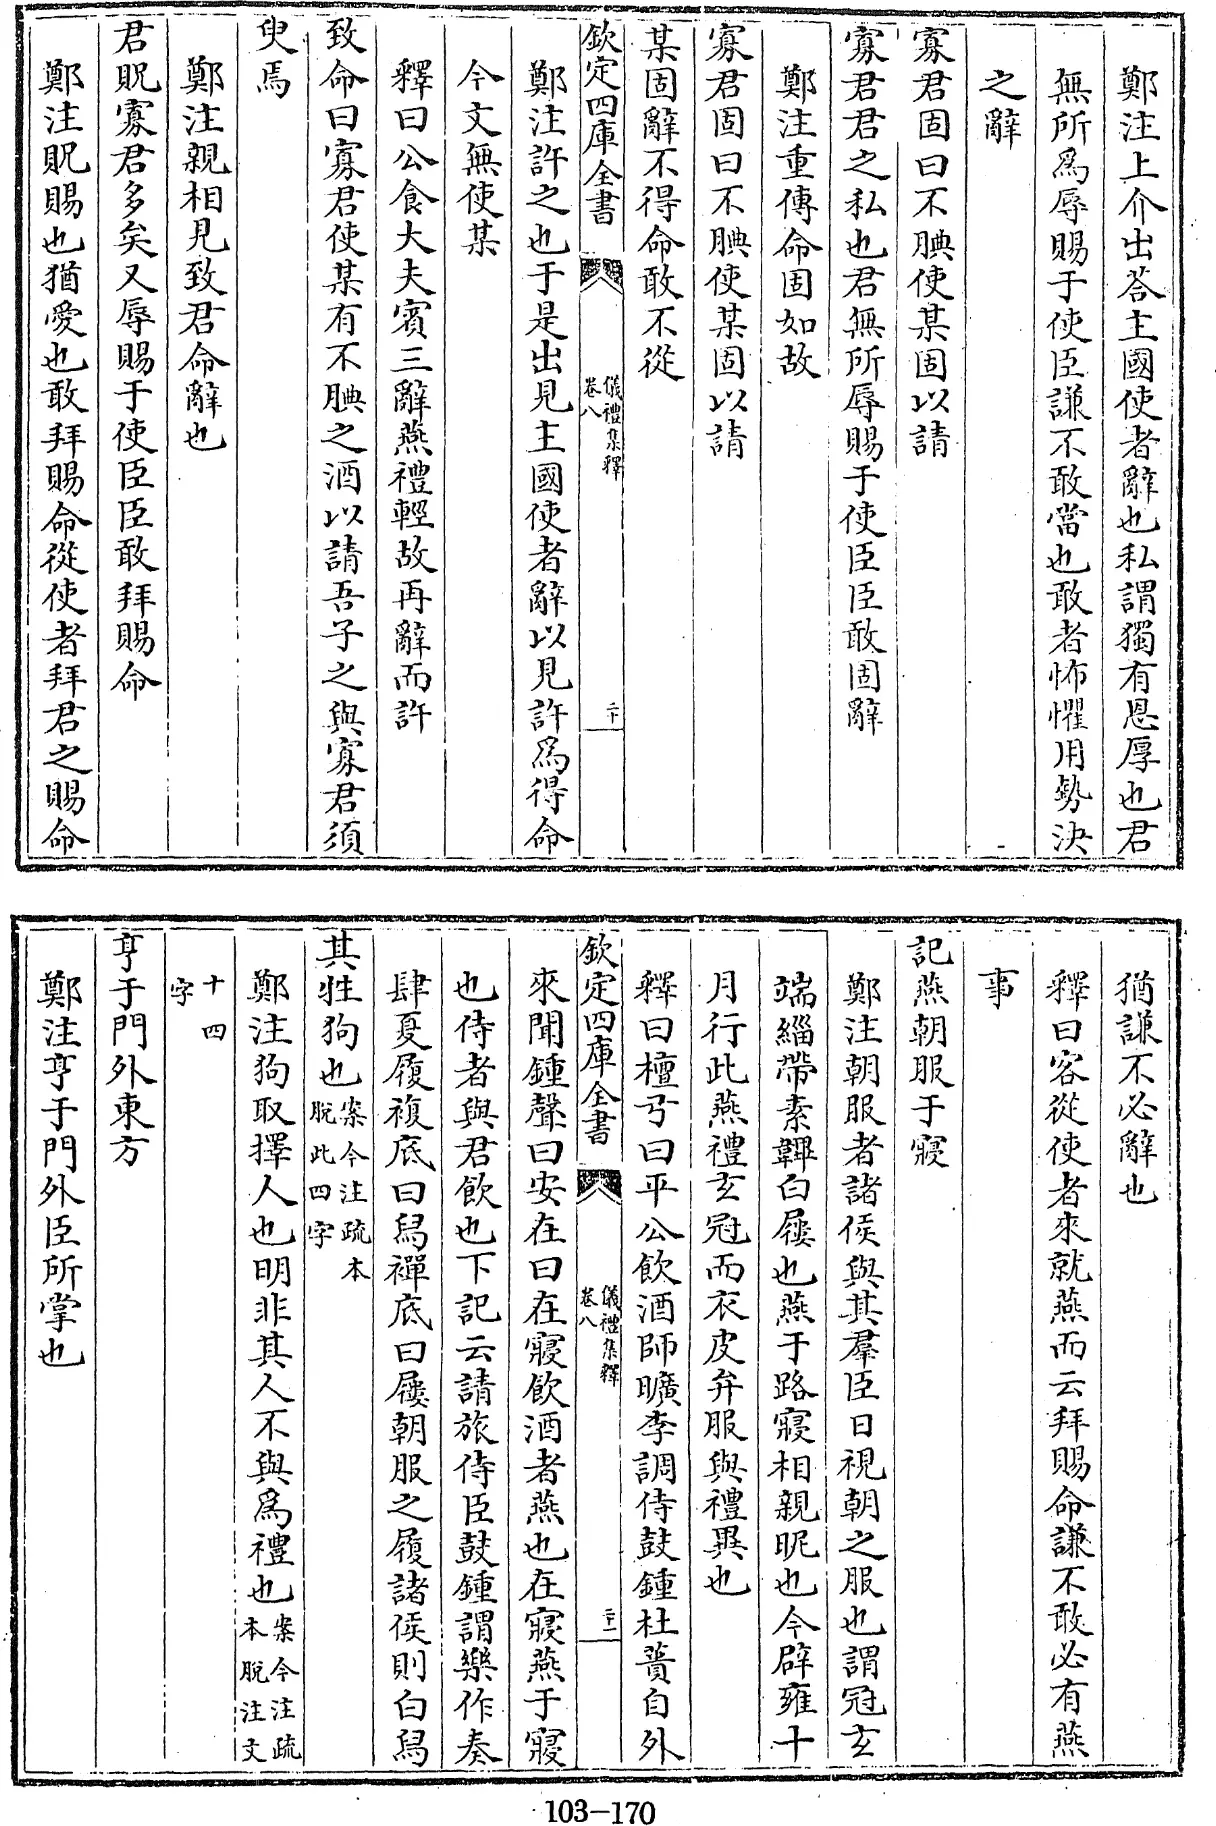 鄭注上介出荅主國使者辭也私謂獨有恩厚也君
無所為辱賜于使臣謙不敢當也敢者怖懼用勢決
之辭
寡君固曰不腆使某固以請
寡君君之私也君無所辱賜于使臣臣敢固辭
鄭注重傳命固如故
寡君固曰不腆使某固以請
某固辭不得命敢不從
欽定四庫全書
儀禮集釋
卷八
二十
鄭注許之也于是出見主國使者辭以見許為得命
今文無使某
釋曰公食大夫賓三辭燕禮輕故再辭而許
致命曰寡君使某有不腆之酒以請吾子之與寡君須
臾焉
鄭注親相見致君命辭也
君貺寡君多矣又辱賜于使臣臣敢拜賜命
鄭注貺賜也猶愛也敢拜賜命從使者拜君之賜命
猶謙不必辭也
釋曰客從使者來就燕而云拜賜命謙不敢必有燕
事
記燕朝服于寢
鄭注朝服者諸侯與其羣臣日視朝之服也謂冠玄
端緇帶素韠白屨也燕于路寢相親昵也今辟雍十
月行此燕禮玄冠而衣皮弁服與禮異也
釋曰檀弓曰平公飲酒師曠李調侍鼓鍾杜蕢自外
欽定四庫全書
儀禮集釋
卷八
二十一
來聞鍾聲曰安在曰在寢飲酒者燕也在寢燕于寢
也侍者與君飲也下記云請旅侍臣鼓鍾謂樂作奏
肆夏履複底曰舄襌底曰屨朝服之履諸侯則白舄
其牲狗也案今注疏本
脫此四字
鄭注狗取擇人也明非其人不與為禮也案今注疏
本脫注文
十四
字
亨于門外東方
鄭注亨于門外臣所掌也
103-170